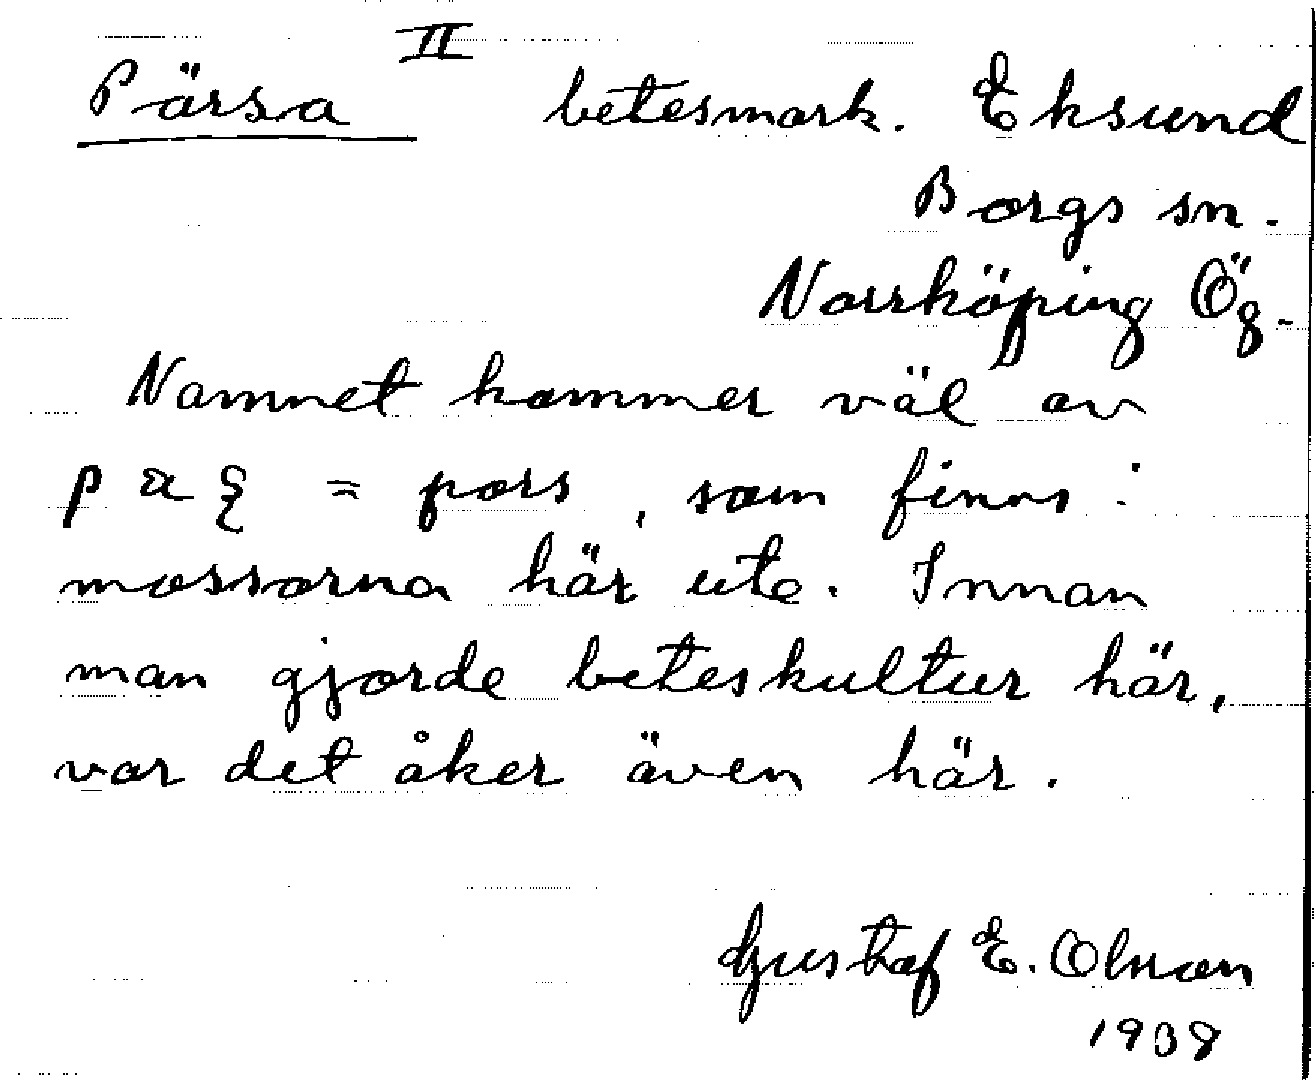 Pärsa II betesmark. Eksund
Borgs sn.
Norrköping Ög.
Namnet kommer väl av
= pors, som finns i
mossorna här ute. Innan
man gjorde beteskultur här,
var det åker även här.
Gustaf E. Olsson
1938